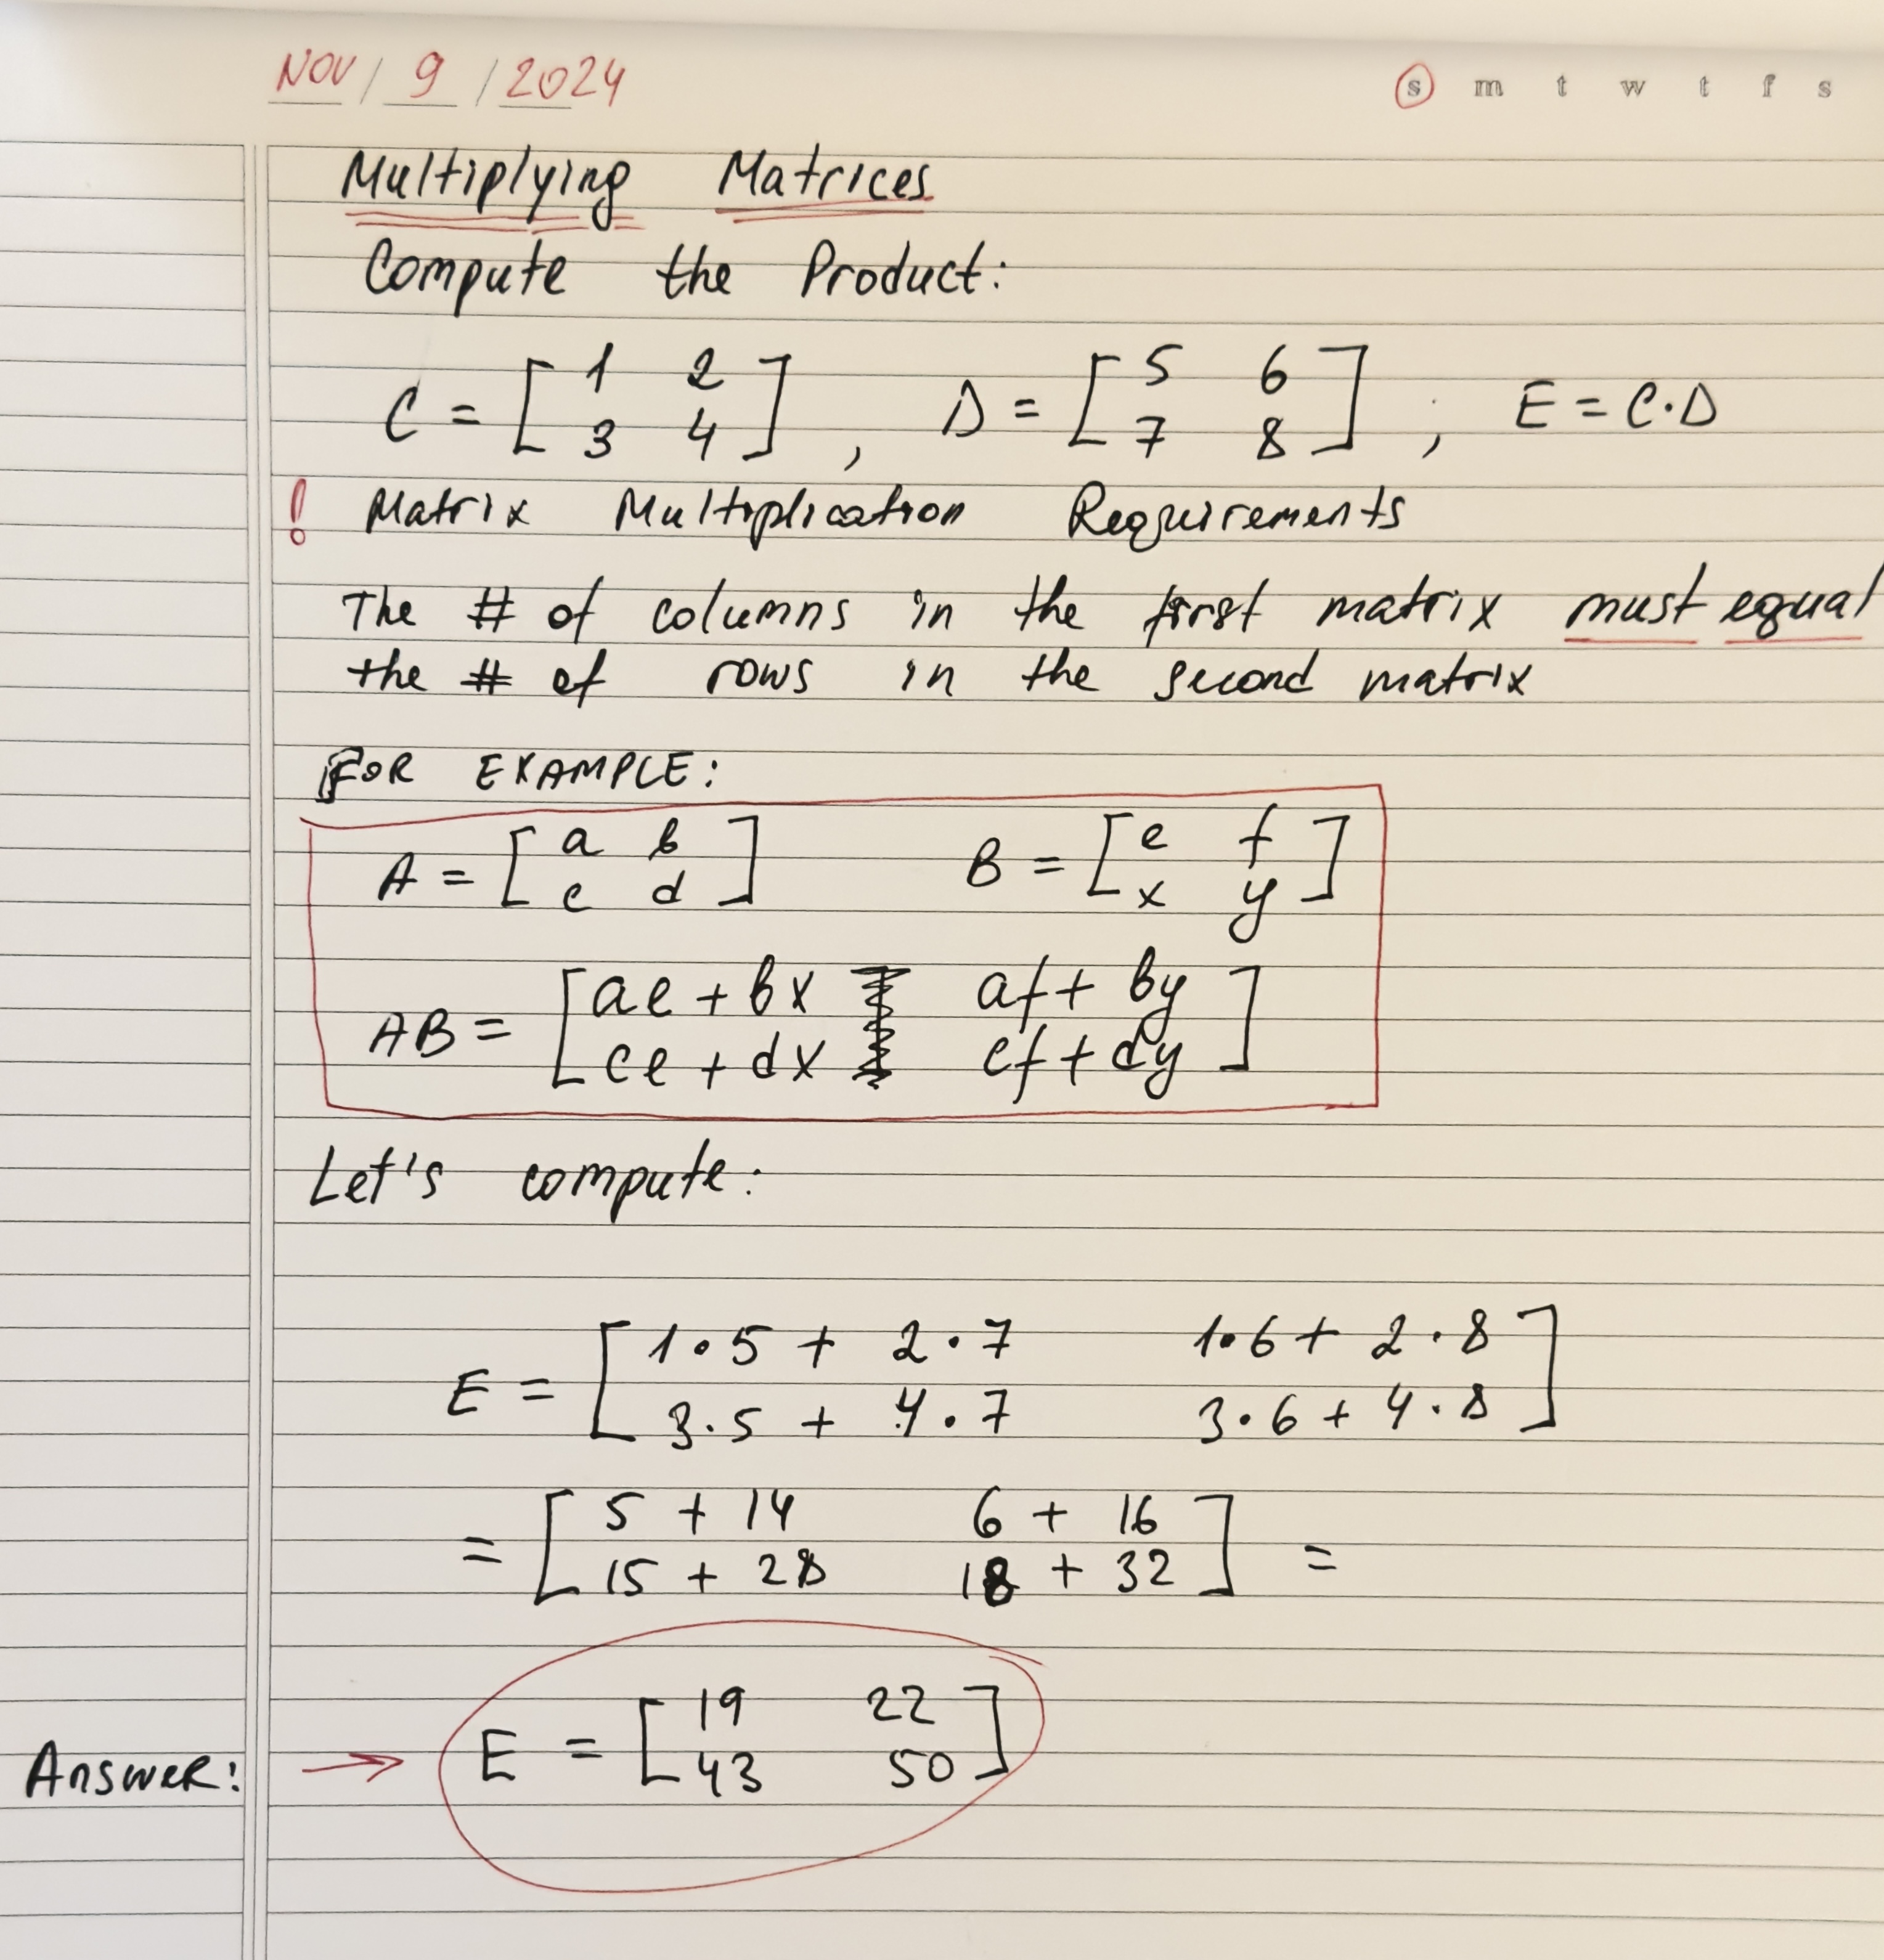 NOV / 9 / 2024 s m t w t f s
Multiplying Matrices
Compute the Product:
C = [ 1 2 ; 3 4 ] , D = [ 5 6 ; 7 8 ] ; E = C·D
! Matrix Multiplication Requirements
The # of columns in the first matrix must equal
the # of rows in the second matrix
FOR EXAMPLE:
A = [ a b ; c d ] B = [ e f ; x y ]
AB = [ ae + bx af + by ; ce + dx cf + dy ]
Let's compute:
E = [ 1·5 + 2·7 1·6 + 2·8 ; 3·5 + 4·7 3·6 + 4·8 ]
= [ 5 + 14 6 + 16 ; 15 + 28 18 + 32 ] =
Answer: → E = [ 19 22 ; 43 50 ]